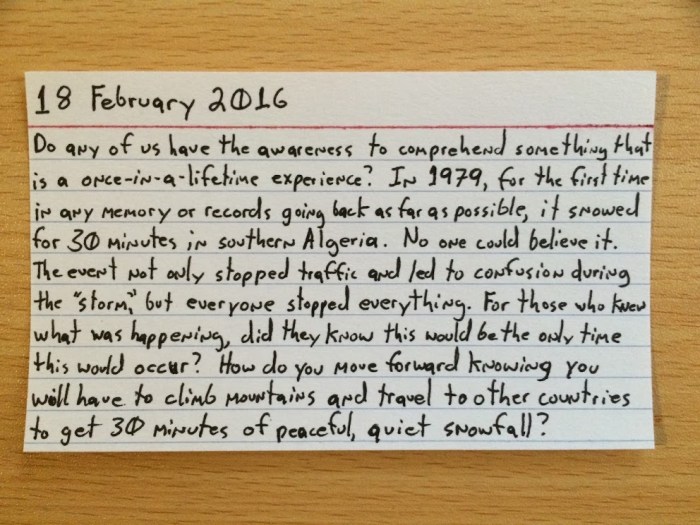 18 February 2016
Do any of us have the awareness to comprehend something that
is a once-in-a-lifetime experience? In 1979, for the first time
in any memory or records going back as far as possible, it snowed
for 30 minutes in southern Algeria. No one could believe it.
The event not only stopped traffic and led to confusion during
the "storm," but everyone stopped everything. For those who knew
what was happening, did they know this would be the only time
this would occur? How do you move forward knowing you
will have to climb mountains and travel to other countries
to get 30 minutes of peaceful, quiet snowfall?